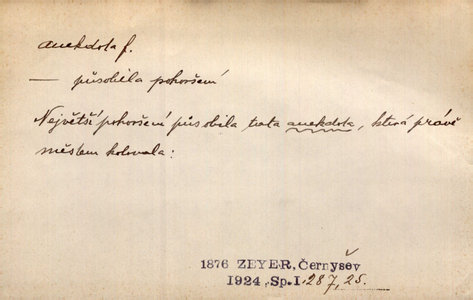 anekdota f.
— působila pohoršení
Největší pohoršení působila tato anekdota, která právě
městem kolovala:
1876 ZEYER, Černyšev
1924, Sp. I 287, 25.